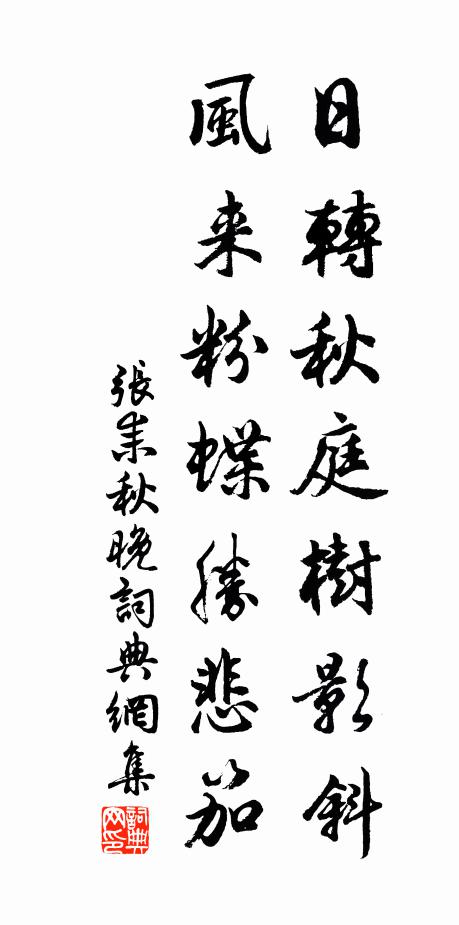 日轉秋庭樹影斜
風来粉蝶勝悲笳
張耒秋晚詞典網集
詞典网印